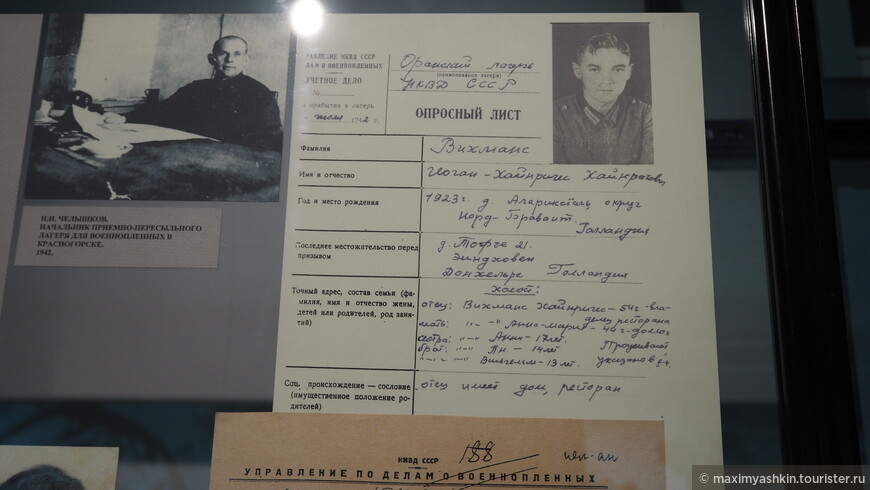 Н.И. ЧЕЛЫШКОВ.
НАЧАЛЬНИК ПРИЕМНО-ПЕРЕСЫЛЬНОГО
ЛАГЕРЯ ДЛЯ ВОЕННОПЛЕННЫХ В
КРАСНОГОРСКЕ.
1942.
НКВД СССР
ВОЕННОПЛЕННЫХ
УЧЕТНОЕ ДЕЛО
№
прибытия в лагерь
1942 г.
Оранский лагерь
(наименование лагеря)
НКВД СССР
ОПРОСНЫЙ ЛИСТ
Фамилия
Вихманс
Имя и отчество
Иоган-Хайнрихс
Год и место рождения
1923 г. д. округ
Норд-
Голландия
Последнее местожительство перед
призывом
д. 21.
Эиндховен
Голландия
Точный адрес, состав семьи (фа-
милия, имя и отчество жены,
детей или родителей, род заня-
тий)
холост:
отец: Вихманс Хайнрихс - 54 г. вла-
делец ресторана
мать: Анна-Мария - 44 г.
сестра: 17 лет.
брат: Ян - 14 лет
Вильгельм - 13 лет.
Соц. происхождение — сословие
(имущественное положение ро-
дителей)
отец имеет дом, ресторан
НКВД СССР
188
УПРАВЛЕНИЕ ПО ДЕЛАМ О ВОЕННОПЛЕННЫХ
maximyashkin.tourister.ru